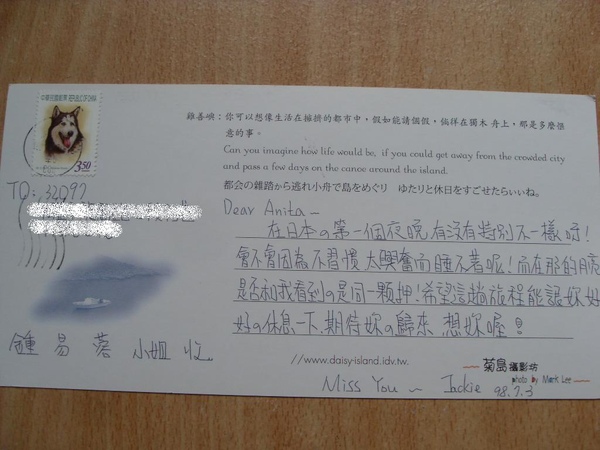 中華民國郵票 REPUBLIC OF CHINA
350
雞善嶼：你可以想像生活在擁擠的都市中，假如能請個假，徜徉在獨木舟上，那是多麼愜
意的事。
Can you imagine how life would be, if you could get away from the crowded city
and pass a few days on the canoe around the island.
都会の雑踏から逃れ小舟で島をめぐり ゆたりと休日をすごせたらいいね。
TO: 32097
Dear Anita~
在日本の第一個夜晚,有沒有特別不一樣呀!
會不會因為不習慣,太興奮而睡不著呢!而在那的月亮
是否和我看到の是同一顆押!希望這趟旅程能讓妳好
好の休息一下,期待妳の歸來,想妳喔!
鍾易蓉 小姐 收
//www.daisy-island.idv.tw.
菊島攝影坊
photo by Mark Lee
Miss You ~ Jackie 98.7.3